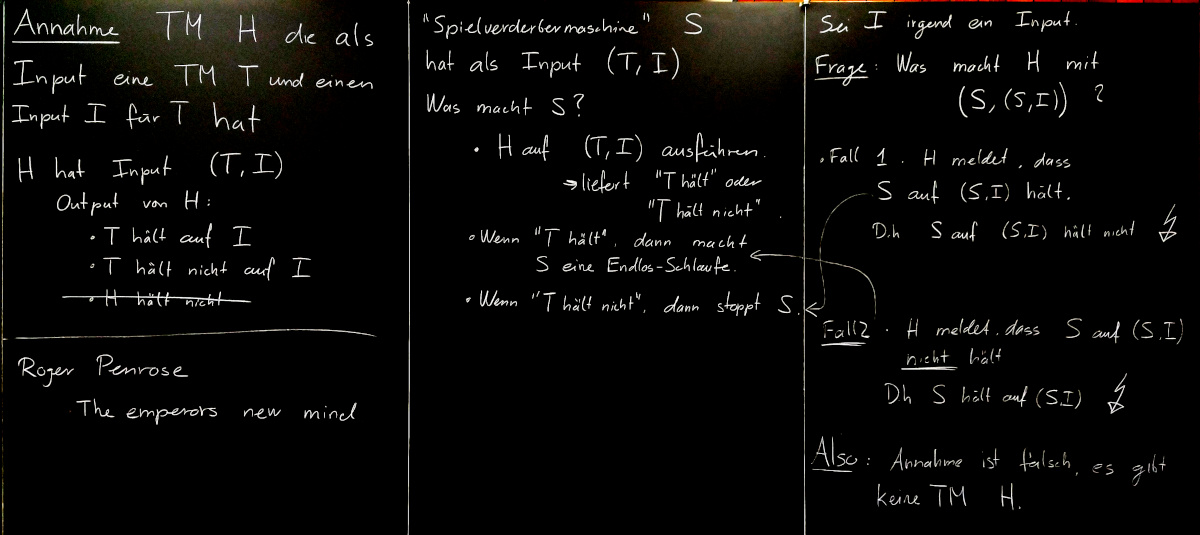 Annahme TM H die als
Input eine TM T und einen
Input I für T hat
H hat Input (T, I)
Output von H:
• T hält auf I
• T hält nicht auf I
• H hält nicht
Roger Penrose
The emperors new mind
"Spielverderbermaschine" S
hat als Input (T, I)
Was macht S?
• H auf (T, I) ausführen.
→ liefert "T hält" oder
"T hält nicht".
• Wenn "T hält", dann macht
S eine Endlos-Schlaufe.
• Wenn "T hält nicht", dann stoppt S.
Sei I irgend ein Input.
Frage: Was macht H mit
(S, (S,I)) ?
• Fall 1. H meldet, dass
S auf (S,I) hält.
D.h S auf (S,I) hält nicht
Fall 2 • H meldet, dass S auf (S,I)
nicht hält
Dh S hält auf (S,I)
Also: Annahme ist falsch, es gibt
keine TM H.